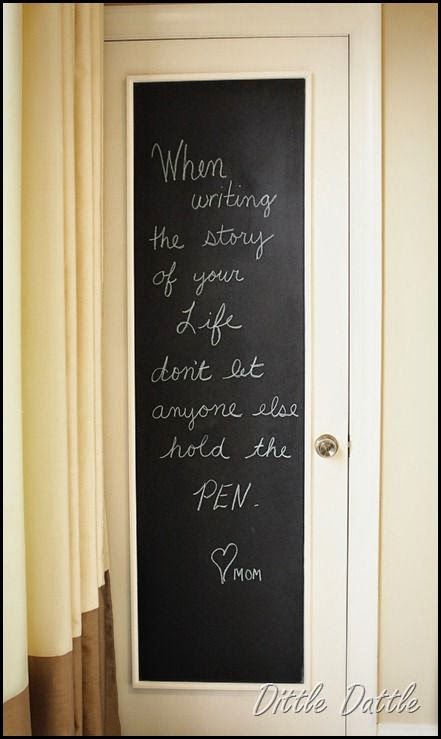 When
writing
the story
of your
Life
don't let
anyone else
hold the
PEN.
♡ MOM
Dittle Dattle